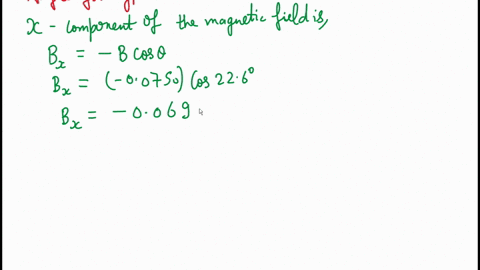 x - component of the magnetic field is,
Bx = - B cosθ
Bx = (-0.0750) cos 22.6°
Bx = - 0.069